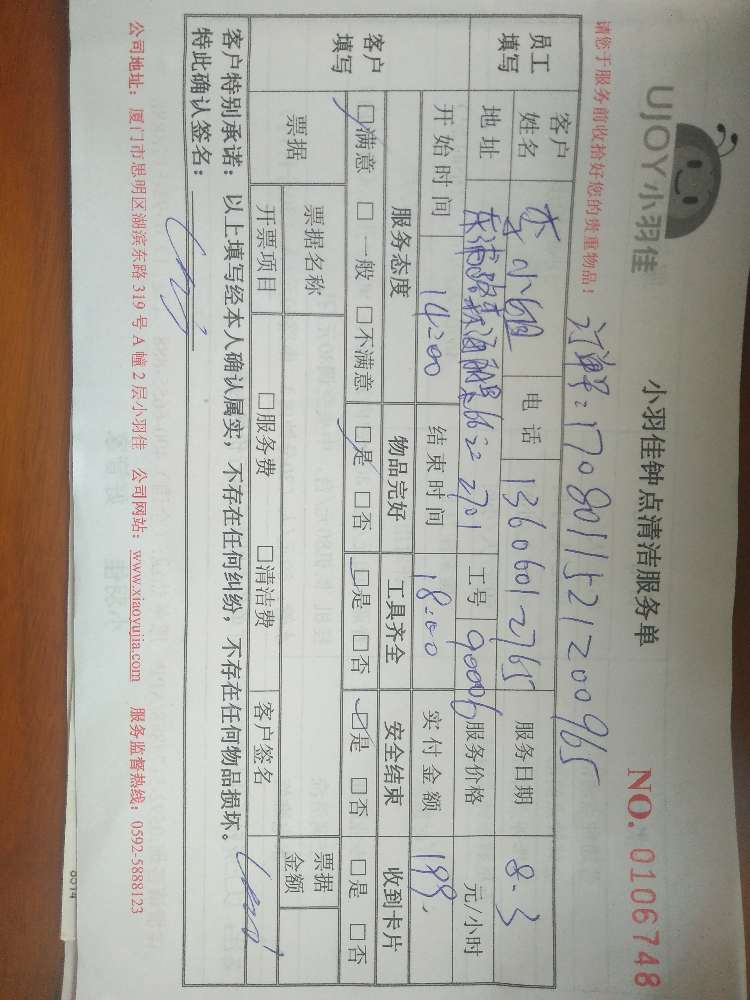 UJOY小羽佳
小羽佳钟点清洁服务单
NO. 0106748
请您于服务前收拾好您的贵重物品！
订单号：1708011521200965
员工填写 客户姓名 李小姐 电话 13606012765 服务日期 8.3
地址 2701 工号 90006 服务价格 元/小时
开始时间 14:00 结束时间 18:00 实付金额 199.
客户填写 服务态度 物品完好 工具齐全 安全结束 收到卡片
□满意 □一般 □不满意 □是 □否 □是 □否 □是 □否 □是 □否
票据 票据名称 票据金额
开票项目 □服务费 □清洁费 客户签名
客户特别承诺：以上填写经本人确认属实，不存在任何纠纷，不存在任何物品损坏。
特此确认签名：
公司地址：厦门市思明区湖滨东路319号A幢2层小羽佳 公司网站：www.xiaoyujia.com 服务监督热线：0592-5888123